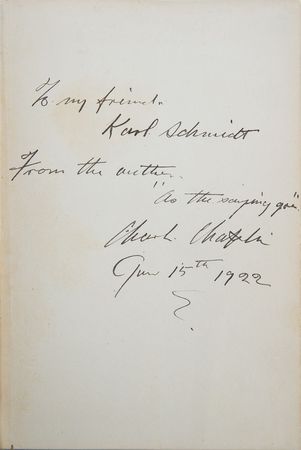 To my friend.
Karl Schmidt
From the author.
"as the saying goes"
Charlie Chaplin
15th 1922